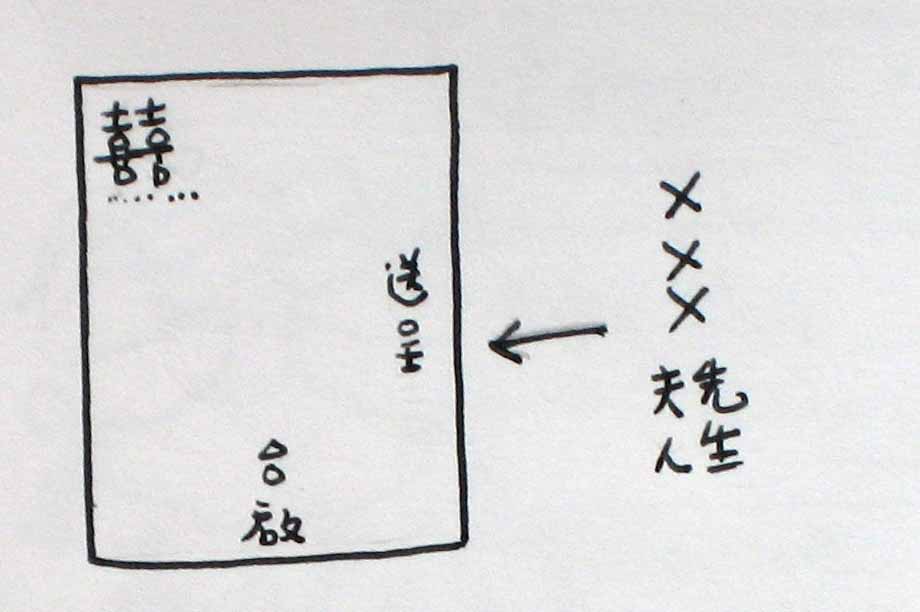 ×××
先生
夫人
送呈
台啟
囍
......